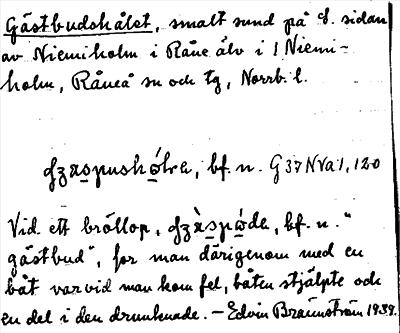 Gästbudshålet, smalt sund på S. sidan
av Niemiholm i Råne älv i 1 Niemi-
holm, Råneå sn och tg, Norrb. l.
bf. n. G37NVa1, 120
Vid ett bröllop, bf. n. "
gästbud", for man därigenom med en
båt varvid man kom fel, båten stjälpte och
en del i den drunknade. – Edvin Brännström 1939.